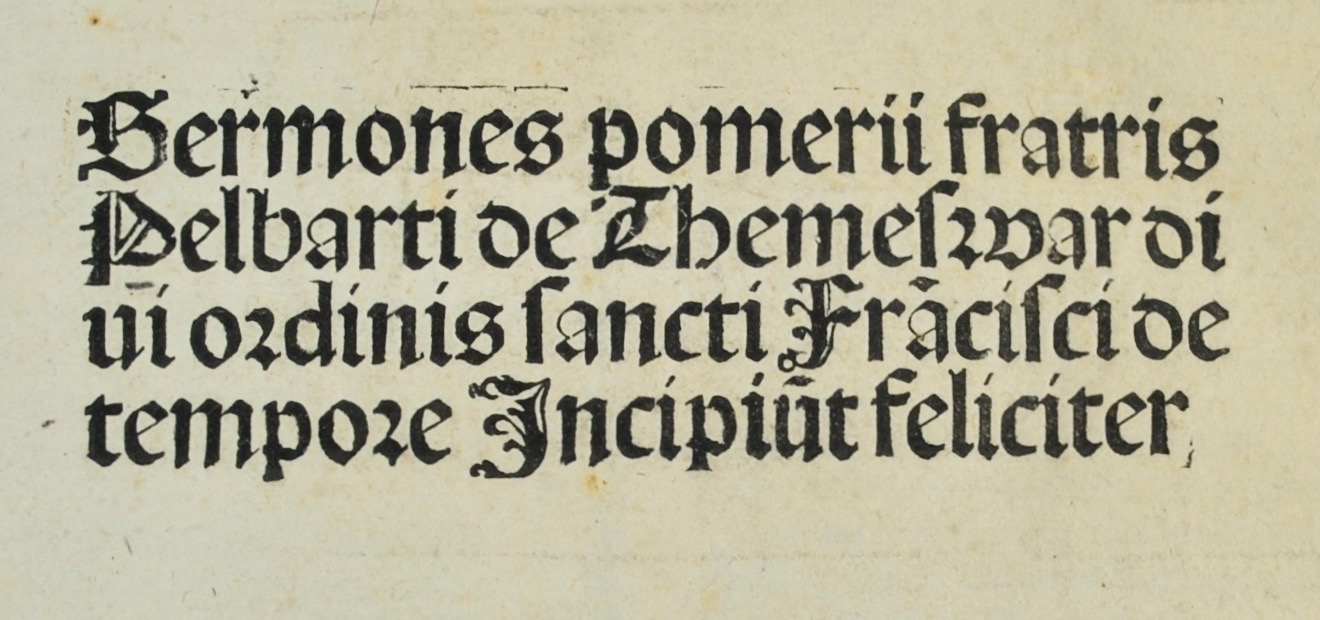 Sermones pomerii fratris
Pelbarti de Themeſꝛwar di
ui oꝛdinis ſancti Frãciſci de
tempoꝛe Incipiũt feliciter